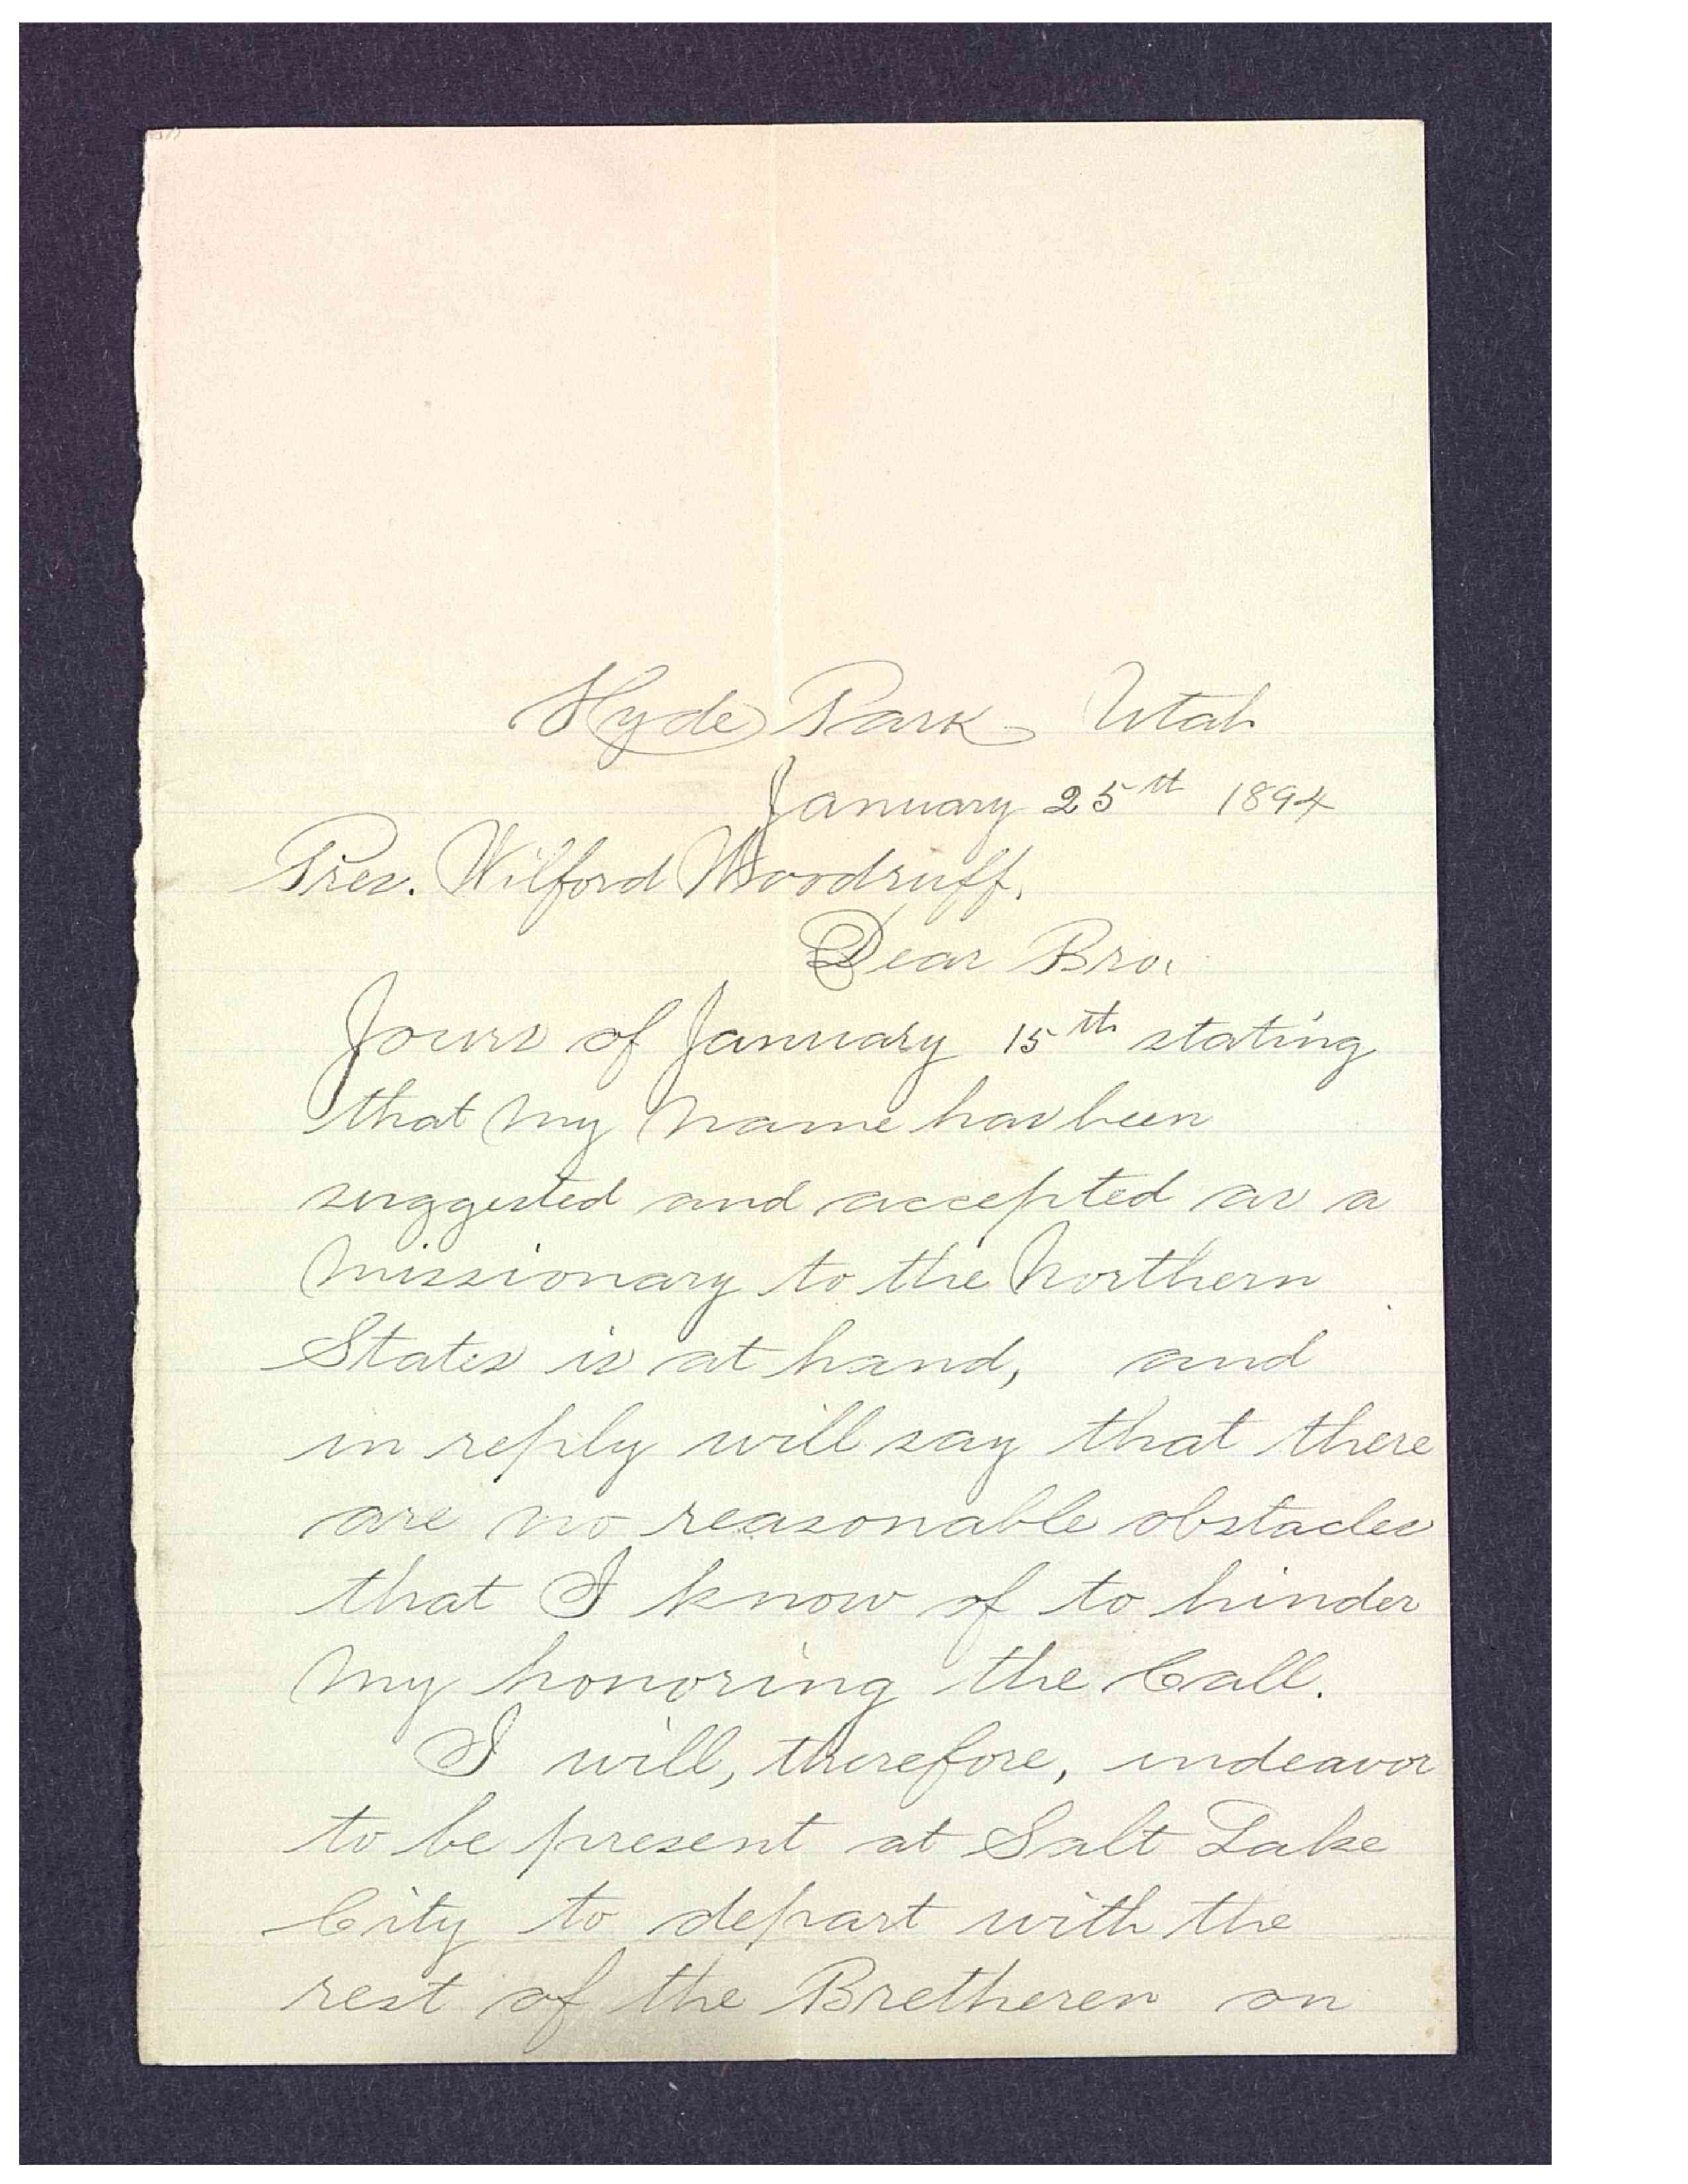 Hyde Park Utah
January 25th 1894
Pres. Wilford Woodruff.
Dear Bro.
Yours of January 15th stating
that my name has been
suggested and accepted as a
missionary to the Northern
States is at hand, and
in reply will say that there
are no reasonable obstacles
that I know of to hinder
my honoring the Call.
I will, therefore, indeavor
to be present at Salt Lake
City to depart with the
rest of the Bretheren on